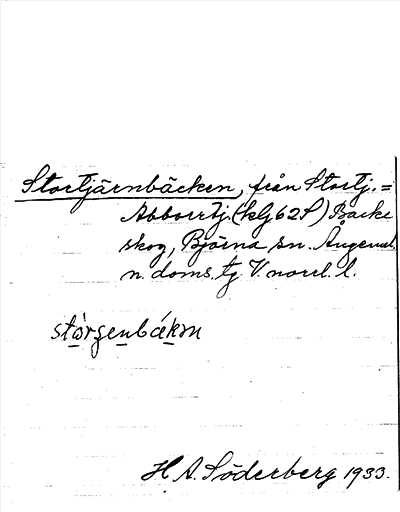 Stortjärnbäcken, från Stortj. =
Abborrtj. (kG62S) Backe
skog, Björna sn. Ångerml.
n. doms. tg. V. norrl. l.
H A. Söderberg 1933.